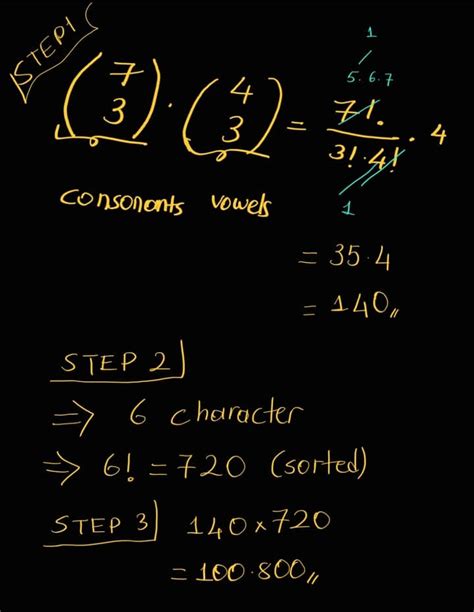 STEP1
1
5.6.7
(7 3) · (4 3) = 7!. / 3!.4! . 4
consonants vowels
1
= 35.4
= 140,,
STEP 2
⇒ 6 character
⇒ 6! = 720 (sorted)
STEP 3 140 x 720
= 100.800,,